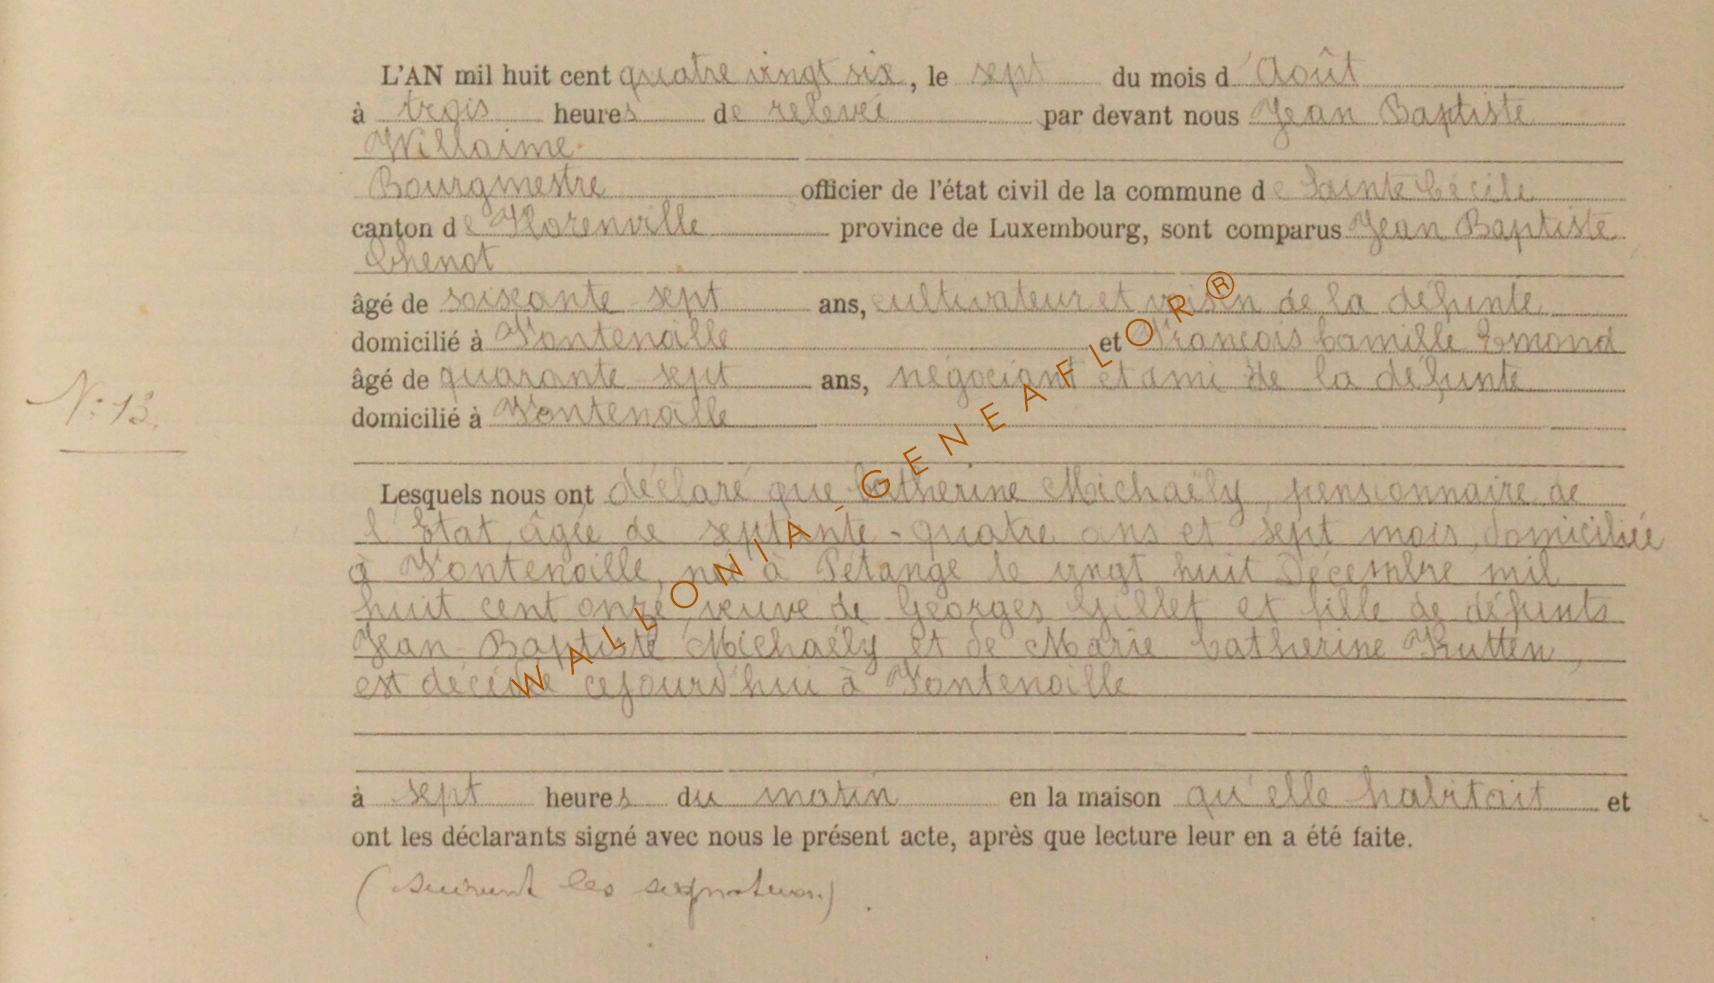 L'AN mil huit cent quatre vingt six, le sept du mois d'Août
à trois heures de relevée par devant nous Jean Baptiste
Willaime
Bourgmestre officier de l'état civil de la commune de Sainte Cécile
canton de Florenville province de Luxembourg, sont comparus Jean Baptiste
Chenot
âgé de soixante sept ans, cultivateur et voisin de la défunte
domicilié à Fontenoille et François Camille Emond
âgé de quarante sept ans, négociant et ami de la défunte
N° 13.
domicilié à Fontenoille
Lesquels nous ont déclaré que Catherine Michaëly, pensionnaire de
l'Etat, âgée de septante-quatre ans et sept mois, domiciliée
à Fontenoille, née à Pétange le vingt huit Décembre mil
huit cent onze veuve de Georges Gillet et fille de défunts
Jean-Baptiste Michaëly et de Marie Catherine Kutten,
est décédée cejourd'hui à Fontenoille
à sept heures du matin en la maison qu'elle habitait et
ont les déclarants signé avec nous le présent acte, après que lecture leur en a été faite.
(suivent les signatures)
WALLONIA-GENEAFLOR®